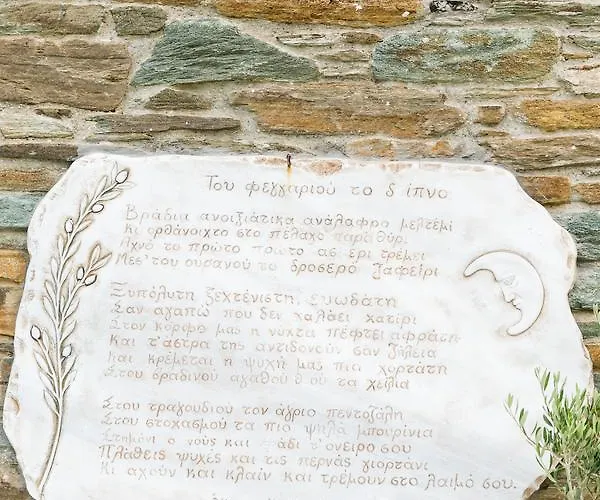 Του φεγγαριού το δείπνο
Βράδια ανοιξιάτικα ανάλαφρο μελτέμι
Κι ορθάνοιχτο στο πέλαγο παραθύρι
Αχνό το πρώτο πρώτο αστέρι τρέμει
Μες' του ουρανού το δροσερό ζαφείρι
Ξυπόλυτη ξεχτένιστη, ευωδάτη
Σαν αγαπώ που δεν χαλάει χατίρι
Στον κόρφο μας η νύχτα πέφτει αφράτη
Και τ' άστρα της αντιδονούν σαν ζήλεια
Και κρέμεται η ψυχή μας πια χορτάτη
Στου βραδινού αγαθού θεού τα χείλια
Στου τραγουδιού τον άγριο πεντοζάλη
Στου στοχασμού τα πιο ψηλά μπουρίνια
ο νους και τ' όνειρο σου
Πλάθεις ψυχές και τις περνάς γιορτάνι
Κι αχούν και κλαίν και τρέμουν στο λαιμό σου.